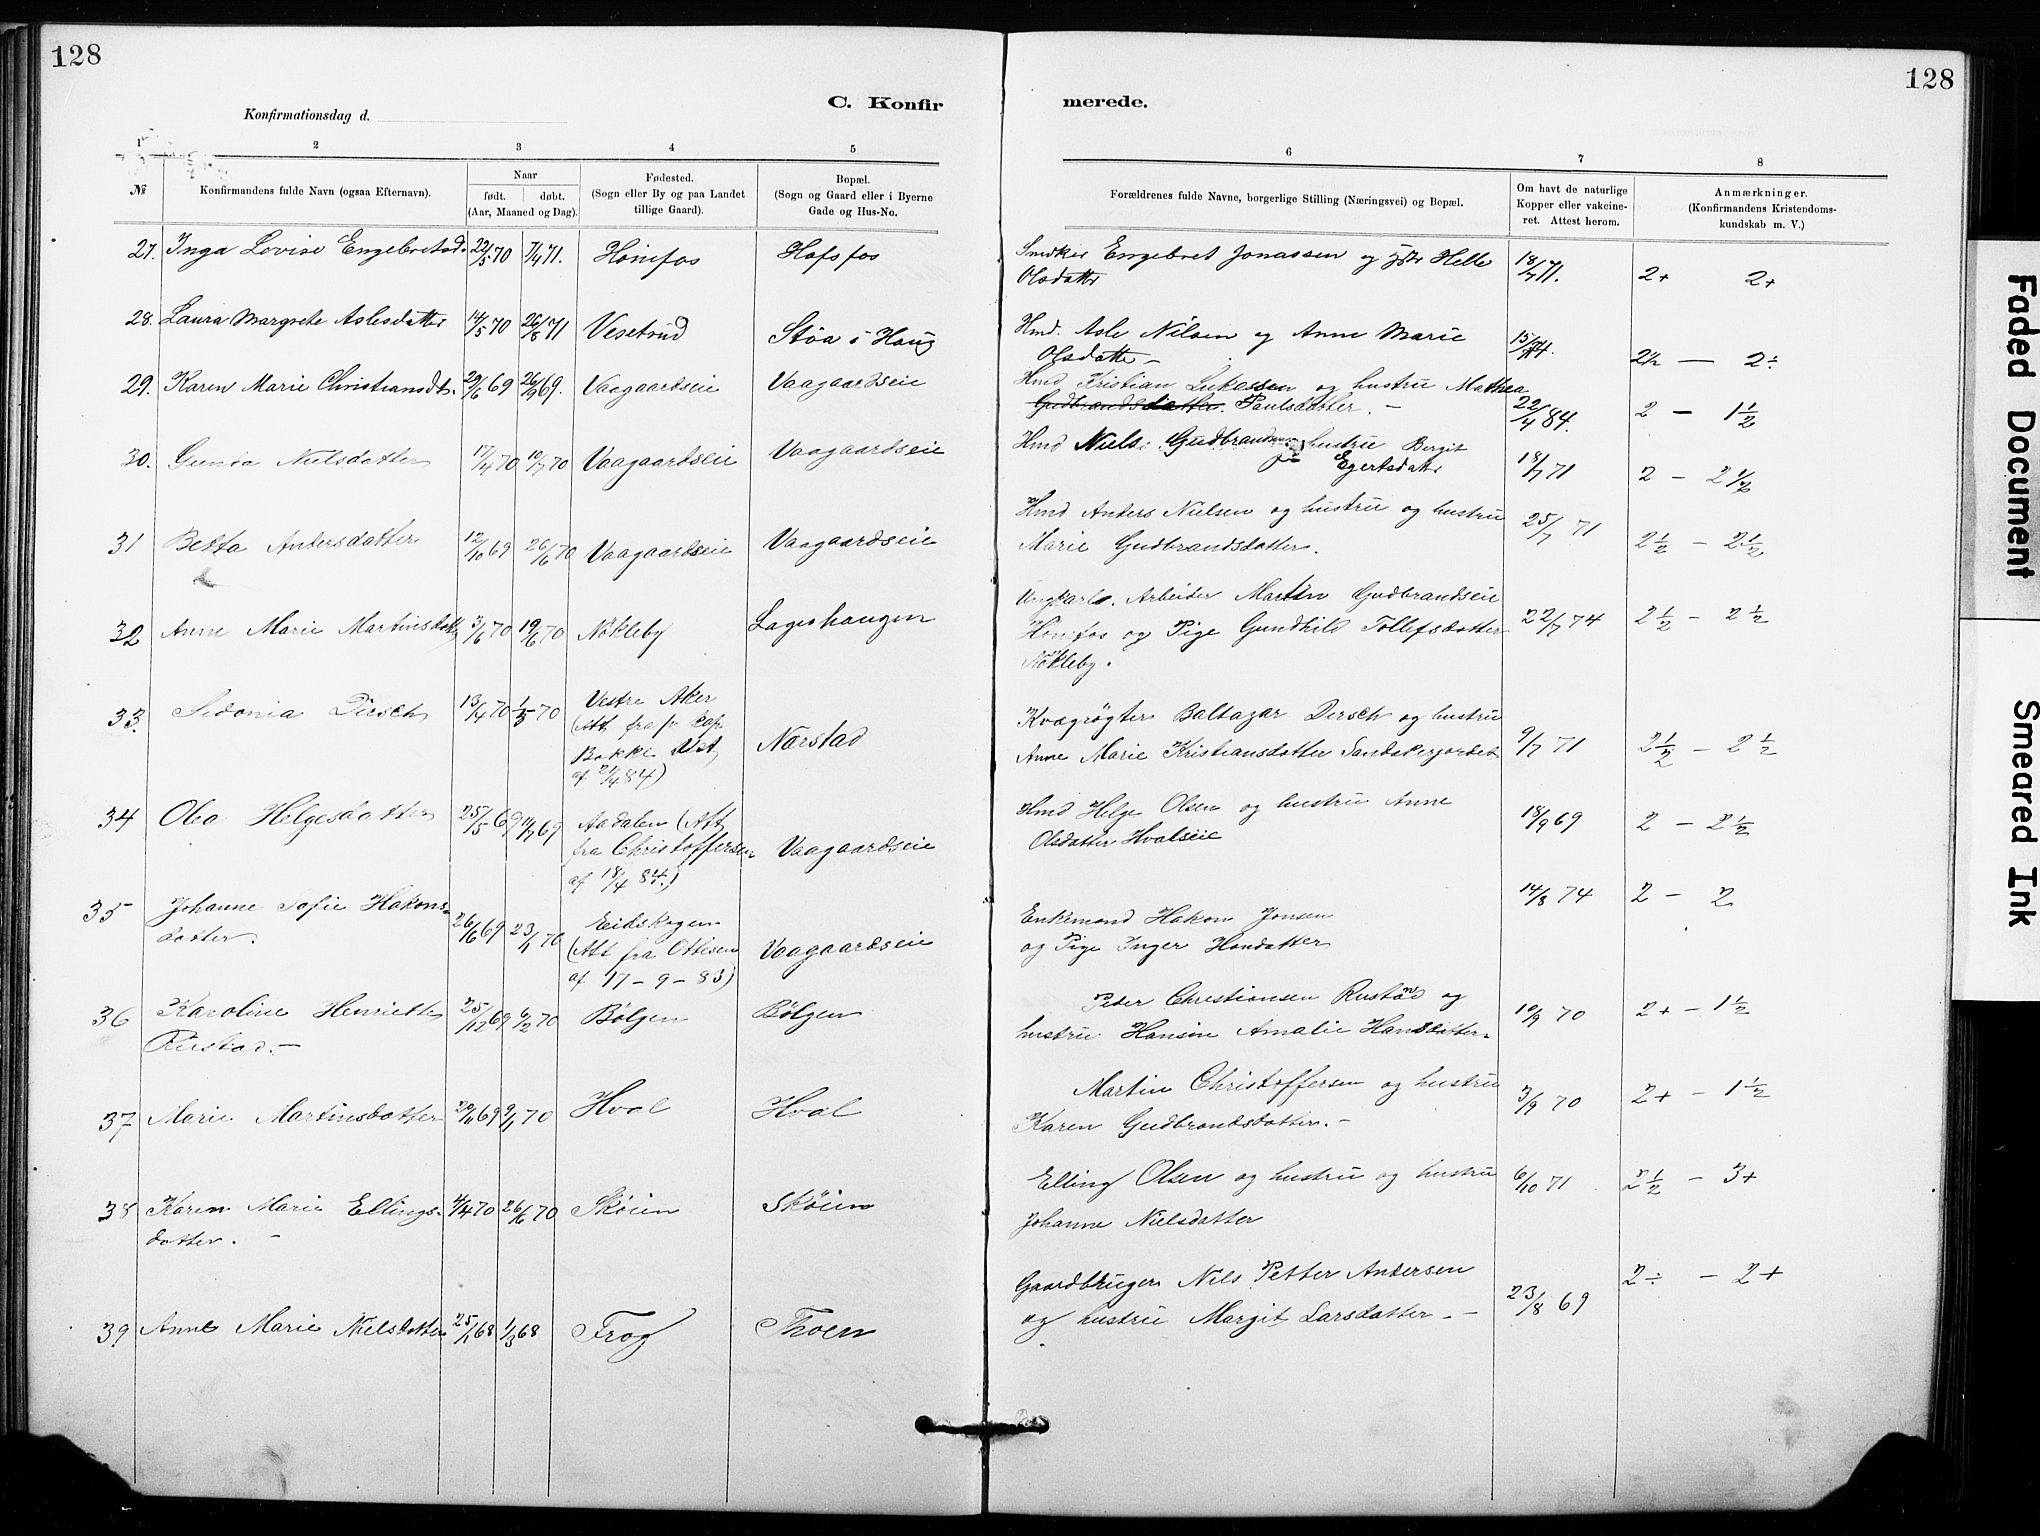 128
128
C. Konfir merede.
Konfirmationsdag d.
1 2 3 4 5 6 7 8
№ Konfirmandens fulde Navn (ogsaa Efternavn). Naar født. døbt. (Aar, Maaned og Dag). Fødested. (Sogn eller By og paa Landet tillige Gaard). Bopæl. (Sogn og Gaard eller i Byerne Gade og Hus-No. Forældrenes fulde Navne, borgerlige Stilling (Næringsvei) og Bopæl. Om havt de naturlige Kopper eller vakcineret. Attest herom. Anmærkninger. (Konfirmandens Kristendomskundskab m. V.)
27. Inga Lovise Engebretsd. 22/5 70 7/4 71. Hønefos Hofsfos Engebret Jonassen og Helle 18/7 71. 2+ 2+
Olsdatter
28. Laura Margrete Aslesdatter 14/5 70 26/8 71 Vesetrud Støa i Haug Hmd. Asle Nilsen og Anne Marie 2½ — 2÷
Olsdatter —
29. Karen Marie Christiansdt. 29/6 69 26/9 69. Vaagaardseie Vaagaardseie Hmd Kristian Lukassen og hustru Mathea 22/4 84. 2 — 1½
Gudbrandsdatter. Paulsdatter. —
30. Gunda Nielsdatter 17/4 70 10/7 70 Vaagaardseie Vaagaardseie Hmd Niels Gudbrandsen hustru Bergit 18/7 71 2 — 2½
Egertsdatter
31 Betta Andersdatter 12/10 69 26/6 70 Vaagaardseie Vaagaardseie Hmd Anders Nielsen og hustru og hustru 25/7 71 2½ — 2½
Marie Gudbrandsdatter.
32 Anne Marie Martinsdatter 3/6 70 19/6 70 Nökleby Lageshaugen Ungkarl. Arbeider Martin Gudbrandseie 22/7 74 2½ — 2½
Hönefos og Pige Gundhild Tollefsdatter
Nökleby.
33. Sidonia Diesch 13/4 70 70 Vestre Aker Nærstad Kvægrögter Baltazar Dirsch og hustru 9/7 71 2½ — 2½
(Att fra p. kap. Anne Marie Kristiansdatter Sandakerjordet
Bakke
af 21/4 84)
34 Olea Helgesdatter 25/5 69 11/7 69 Aadalen (Att Vaagaardseie Hmd Helge Olsen og hustru Anne 18/9 69 2 — 2½
fra Christoffersen Olsdatter Hvalseie
af 18/4 84.)
35 Johanne Sofie Hakons- 26/6 69 23/1 70 Eidskogen Vaagaardseie Enkemand Hakon Jonsen 14/8 74 2 — 2
datter. (Att fra Ottesen og Pige Inger Hansdatter
af 17-9-83)
36 Karoline Henriette 25/12 69 6/2 70 Bølgen Bølgen Peder Christiansen Rustad og 10/9 70 2+ — 1½
Rustad. — hustru Hansine Amalie Hansdatter.
37 Marie Martinsdatter 20/11 69 9/1 70 Hval Hval Martin Christoffersen og hustru 3/9 70 2+ — 1½
Karen Gudbrandsdatter. —
38 Karen Marie Ellings- 4/4 70 26/6 70 Skøien Skøien Elling Olsen og hustru og hustru 6/10 71 2½ — 3+
datter. — Johanne Nielsdatter
39 Anne Marie Nielsdatter 25/1 68 1/3 68 Frog Thoen Gaardbruger Nils Petter Andersen 23/8 69 2÷ — 2+
og hustru Margit Larsdatter. —
Faded Document
Smeared Ink